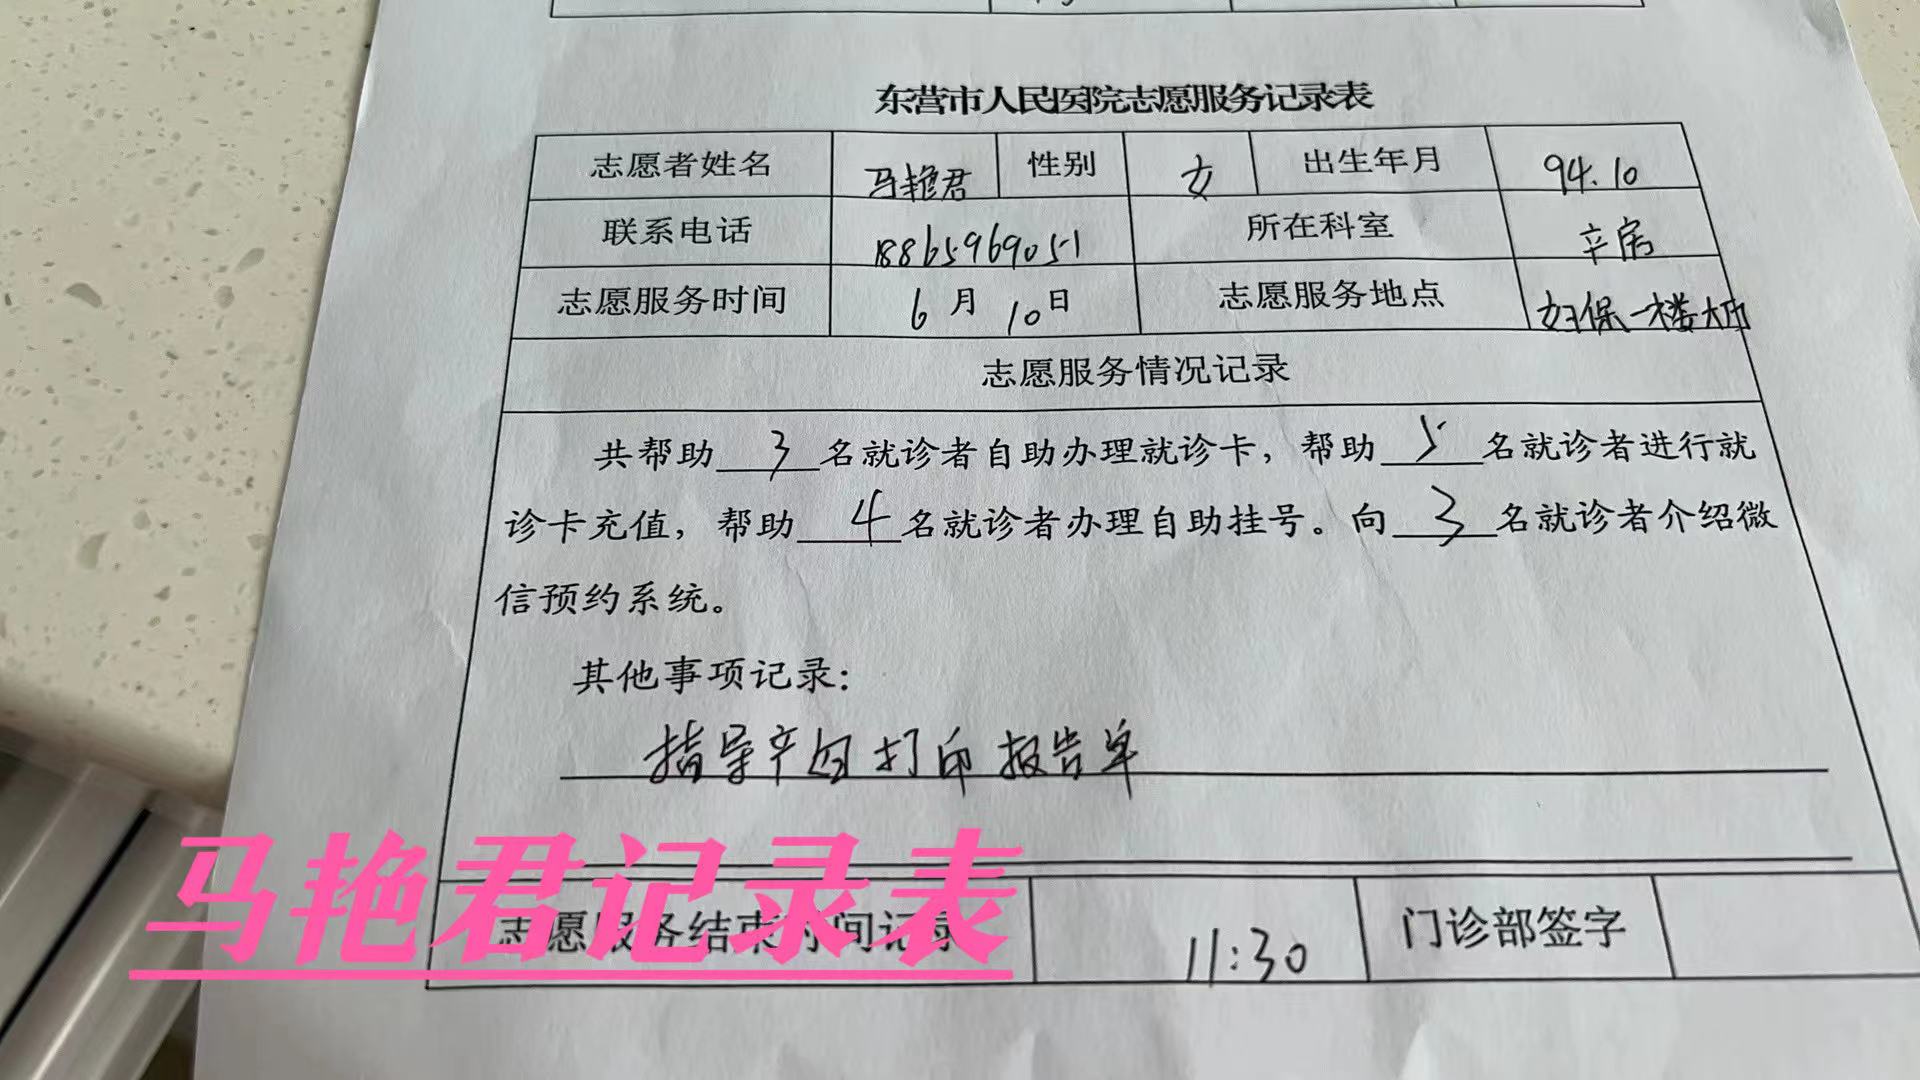 东营市人民医院志愿服务记录表
志愿者姓名 马艳君 性别 女 出生年月 94.10
联系电话 18865969051 所在科室 产房
志愿服务时间 6月10日 志愿服务地点 妇保一楼大厅
志愿服务情况记录
共帮助3名就诊者自助办理就诊卡，帮助5名就诊者进行就
诊卡充值，帮助4名就诊者办理自助挂号。向3名就诊者介绍微
信预约系统。
其他事项记录：
指导产妇打印报告单
马艳君记录表
志愿服务结束时间记录 11:30 门诊部签字